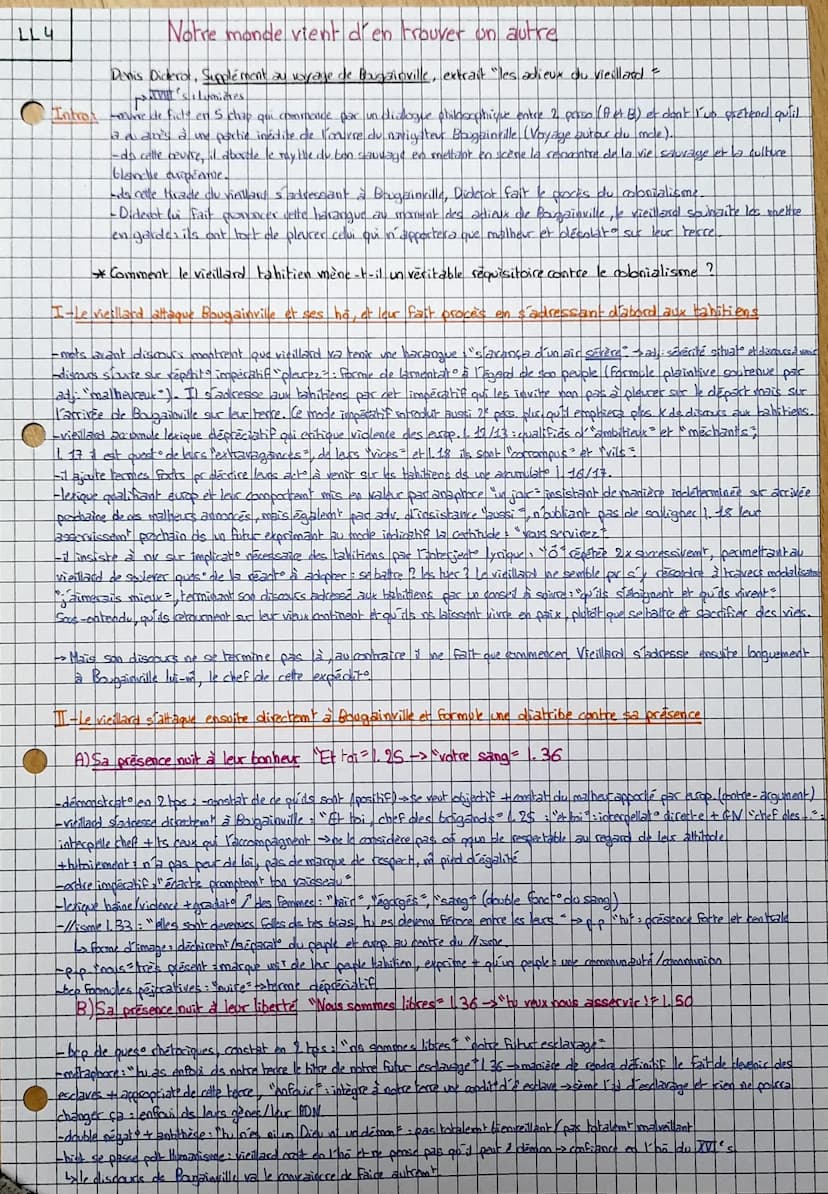 LL4
Notre monde vient d'en trouver un autre
Denis Diderot, Supplément au voyage de Bougainville, extrait "les adieux du vieillard"
XVIII's lumières
Intro: -œuvre de fict° en 5 chap qui commence par un dialogue philosophique entre 2 perso (A et B) et dont l'un prétend qu'il
a eu accès à une partie inédite de l'œuvre du navigateur Bougainville (Voyage autour du monde).
-ds cette œuvre, il aborde le mythe du bon sauvage en mettant en scène la rencontre de la vie sauvage et la culture
blanche européenne.
-ds cette tirade du vieillard s'adressant à Bougainville, Diderot fait le procès du colonialisme.
-Diderot lui fait prononcer cette harangue au moment des adieux de Bougainville, le vieillard souhaite les mettre
en garde: ils ont tort de pleurer celui qui n'apportera que malheur et désolat° sur leur terre.
* Comment le vieillard tahitien mène-t-il un véritable réquisitoire contre le colonialisme ?
I-Le vieillard attaque Bougainville et ses ho, et leur fait procès en s'adressant d'abord aux tahitiens
-mots avant discours montrent que vieillard va tenir une harangue: "s'avança d'un air sévère" → adj. sévérité situat° et discours
-discours s'ouvre sur répétit° impératif "pleurez": forme de lamentat° à l'égard de son peuple (formule plaintive soutenue par
adj. "malheureux"). Il s'adresse aux tahitiens par cet impératif qui les invite non pas à pleurer sur le départ mais sur
l'arrivée de Bougainville sur leur terre. Ce mode impératif introduit aussi 2e pers. plur. qu'il emploiera ds discours aux tahitiens.
-vieillard accumule lexique dépréciatif qui critique violence des europ. l.12/13: qualifiés d'"ambitieux" et "méchants";
l.17 il est quest° de leurs "extravagances", de leurs "vices" et l.18 ils sont "corrompus" et "vils".
-il ajoute termes forts pr décrire leurs act° à venir sur les tahitiens ds une accumulat° l.16/17.
-lexique qualifiant europ et leur comportemt mis en valeur par anaphore "un jour" insistant de manière indéterminée sur arrivée
prochaine de ces malheurs annoncés, mais égalemt par adv. d'insistance "aussi", n'oubliant pas de souligner l.18 leur
asservissemt prochain ds un futur exprimant au mode indicatif la certitude: "vous servirez".
-il insiste à nv sur implicat° nécessaire des tahitiens par l'interject° lyrique, "Ô" répétée 2x successivemt, permettant au
vieillard de soulever quest° de la réact° à adopter: se battre ? les tuer ? Le vieillard ne semble pr s'y résoudre à travers modalisat°
"j'aimerais mieux", terminant son discours adressé aux tahitiens par un conseil à suivre: "qu'ils s'éloignent et qu'ils vivent".
Sous-entendu, qu'ils retournent sur leur vieux continent et qu'ils ns laissent vivre en paix, plutôt que se battre et sacrifier des vies.
→ Mais son discours ne se termine pas là, au contraire il ne fait que commencer. Vieillard s'adresse ensuite longuement
à Bougainville lui-m̂, le chef de cette expédit°.
II-Le vieillard s'attaque ensuite directemt à Bougainville et formule une diatribe contre sa présence
A) Sa présence nuit à leur bonheur "Et toi" l.25 → "votre sang" l.36
-démonstrat° en 2 tps: -constat de ce qu'ils sont (positif) → se veut objectif + constat du malheur apporté par europ. (contre-argument)
-vieillard s'adresse directemt à Bougainville: "Et toi, chef des brigands" l.25: "et toi": interpellat° directe + GN "chef des...":
interpelle chef + ts ceux qui l'accompagnent → ne le considère pas cō qqun de respectable au regard de leur attitude
+ tutoiement: n'a pas peur de lui, pas de marque de respect, m̂ pied d'égalité
-ordre impératif: "écarte promptemt ton vaisseau"
-lexique haine/violence + gradat° ↗ des femmes: "haïr", "égorgés", "sang" (double fonct° du sang)
-//isme l.33: "elles sont devenues folles ds tes bras, tu es devenu féroce entre les leurs" → p.p "tu": présence forte et centrale
↳ forme d'image: déchiremt/séparat° du peuple et europ au centre du //isme.
-p.p "nous" très présent: marque voix de leur peuple tahitien, exprime + qu'un peuple: une communauté/communion
-bcp formules péjoratives: "nuire" → terme dépréciatif
B) Sa présence nuit à leur liberté "Nous sommes libres" l.36 → "tu veux nous asservir !" l.50
-bcp de quest° rhétoriques, constat en 2 tps: "ns sommes libres" "notre futur esclavage"
-métaphore: "tu as enfoui ds notre terre le titre de notre futur esclavage" l.36 → manière de rendre définitif le fait de devenir des
esclaves + appropriat° de cette terre, "enfouir": intègre à notre terre une condit° d'esclave → sème l'id d'esclavage et rien ne pourra
changer ça: enfoui ds leurs gènes/leur ADN
-double négat° + antithèse: "tu n'es ni un Dieu ni un démon": pas totalemt bienveillant/pas totalemt malveillant
↳ le discours de Bougainville va le convaincre de faire autremt